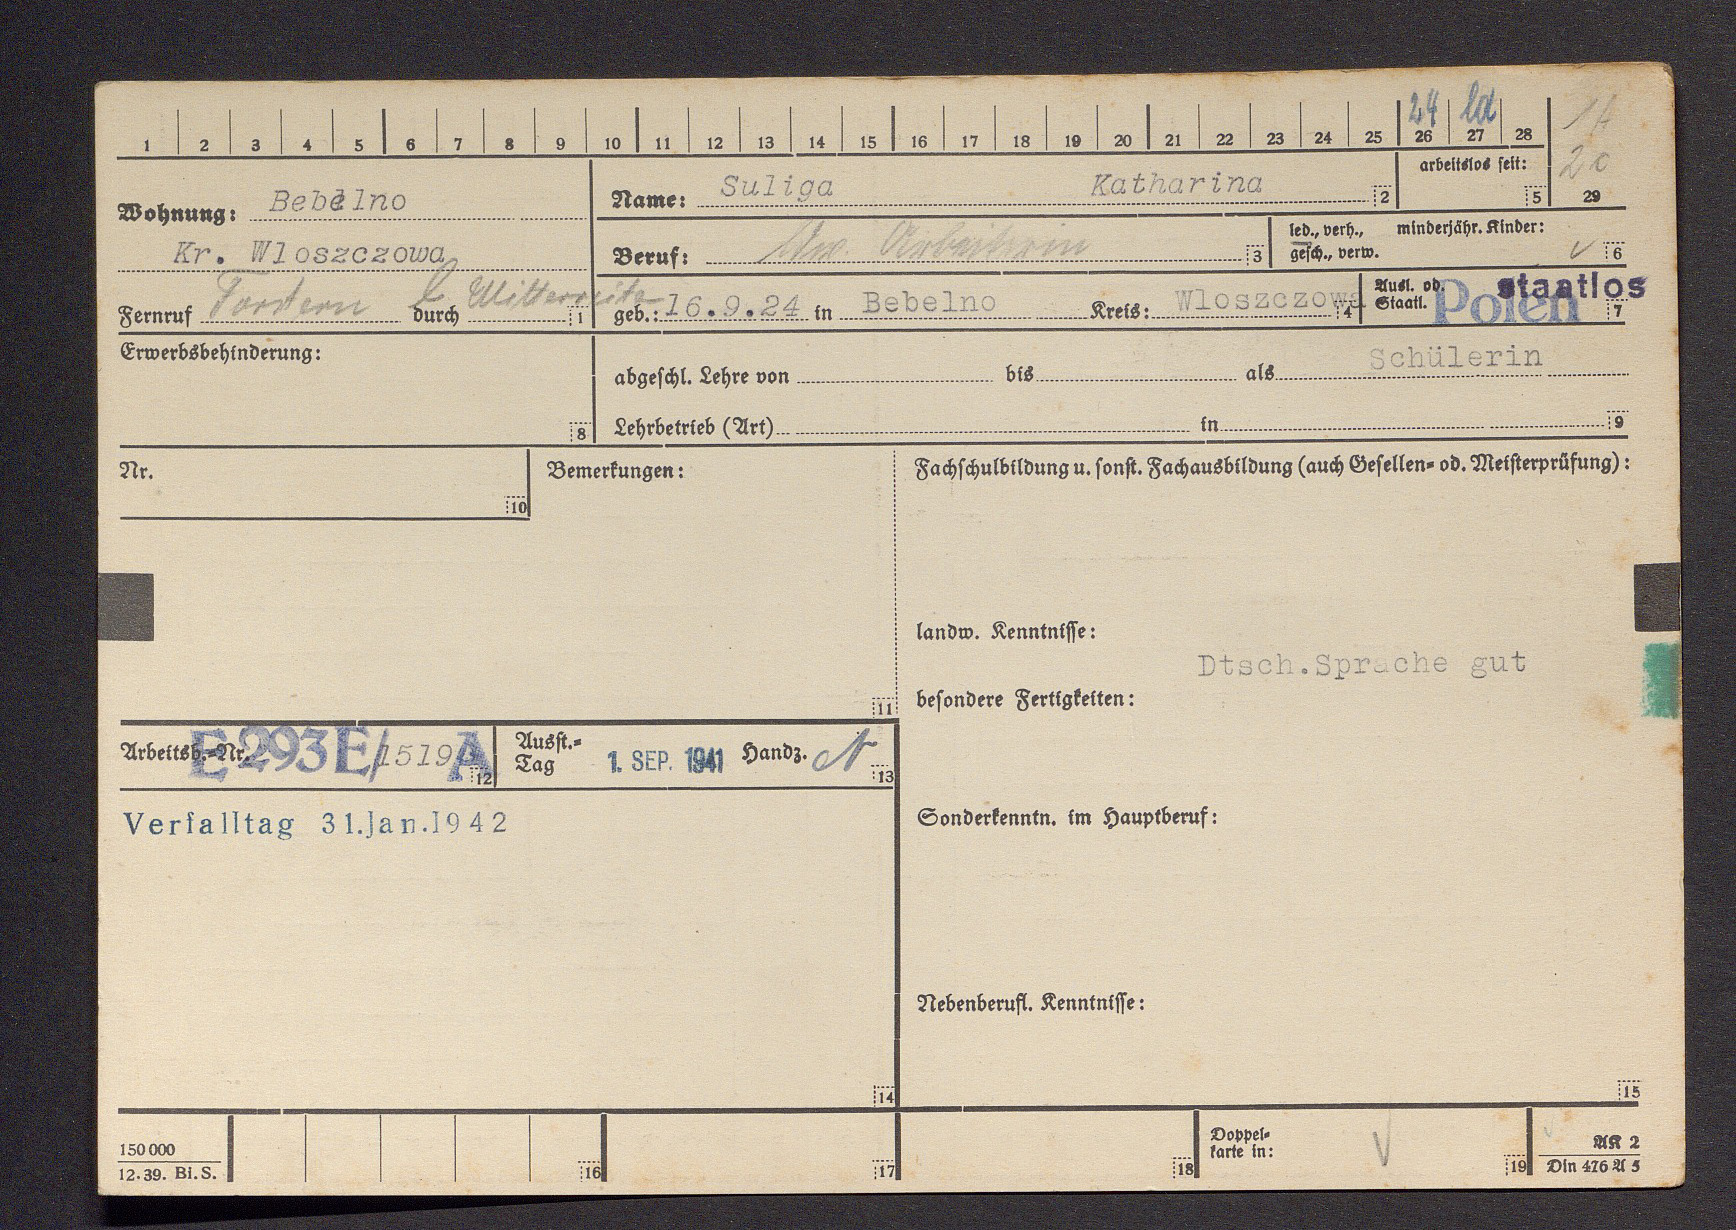 24 ld
1 2 3 4 5 6 7 8 9 10 11 12 13 14 15 16 17 18 19 20 21 22 23 24 25 26 27 28
2c
29
Wohnung: Bebelno
Kr. Wloszczowa
Fernruf durch 1
Name: Suliga Katharina 2
arbeitslos seit:
5
Beruf: Arbeiterin 3
led., verh., minderjähr. Kinder:
gesch., verw. 6
geb.: 16.9.24 in Bebelno Kreis: Wloszczowa 4
Ausl. od. staatlos
Staatl. Polen 7
Erwerbsbehinderung:
8
abgeschl. Lehre von bis als Schülerin
Lehrbetrieb (Art) in 9
Nr.
10
Bemerkungen:
11
Fachschulbildung u. sonst. Fachausbildung (auch Gesellen- od. Meisterprüfung):
landw. Kenntnisse:
Dtsch.Sprache gut
besondere Fertigkeiten:
Arbeitsb.-Nr. E 293 E/ A 12
Ausst.-
Tag 1. SEP. 1941 Handz. 13
Verfalltag 31.Jan.1942
14
Sonderkenntn. im Hauptberuf:
Nebenberufl. Kenntnisse:
15
150 000
12.39. Bi.S.
16
17
18
Doppel-
karte in:
19
AK 2
Din 476 A 5